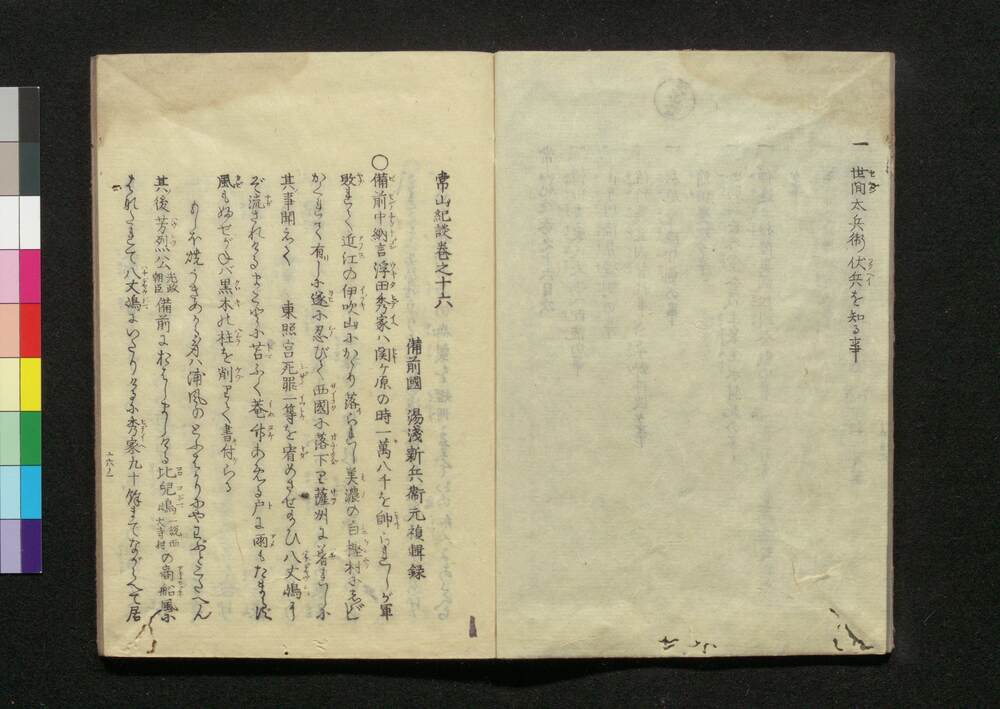 一 世間太兵衛伏兵を知る事
常山紀談巻之十六
備前國 湯淺新兵衛元禎輯録
○備前中納言浮田秀家ハ関ヶ原の時一萬八千を帥られしが軍
敗れて近江の伊吹山にかゝり落られし美濃の白樫村に
かくれて有しに遂に忍びて西國に落下り薩州に著れしに
其事聞えて 東照宮死罪一等を宥めさせ給ひ八丈嶋に
ぞ流されける 苫ふく菴 戸に雨もたまらず
風もふせがねバ黒木の柱を削りて書付らる
もしほ焼うきめかる身ハ浦風のとふばかりにやわぶとこたへん
其後芳烈公光政朝臣備前におはしましける比兒嶋一説西大寺村の商舩風に
はなたれて八丈嶋にいたりけるに秀家九十餘までながらへて居
十六ノ一